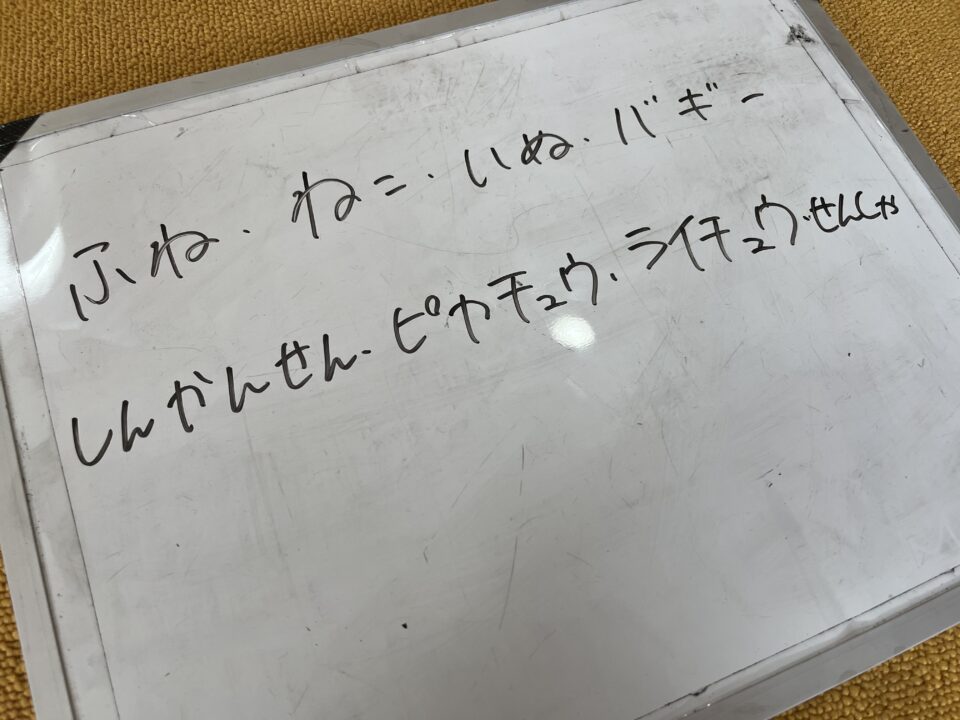 ふね・ねこ・いぬ・バギー
しんかんせん・ピカチュウ・ライチュウ・せんしゃ